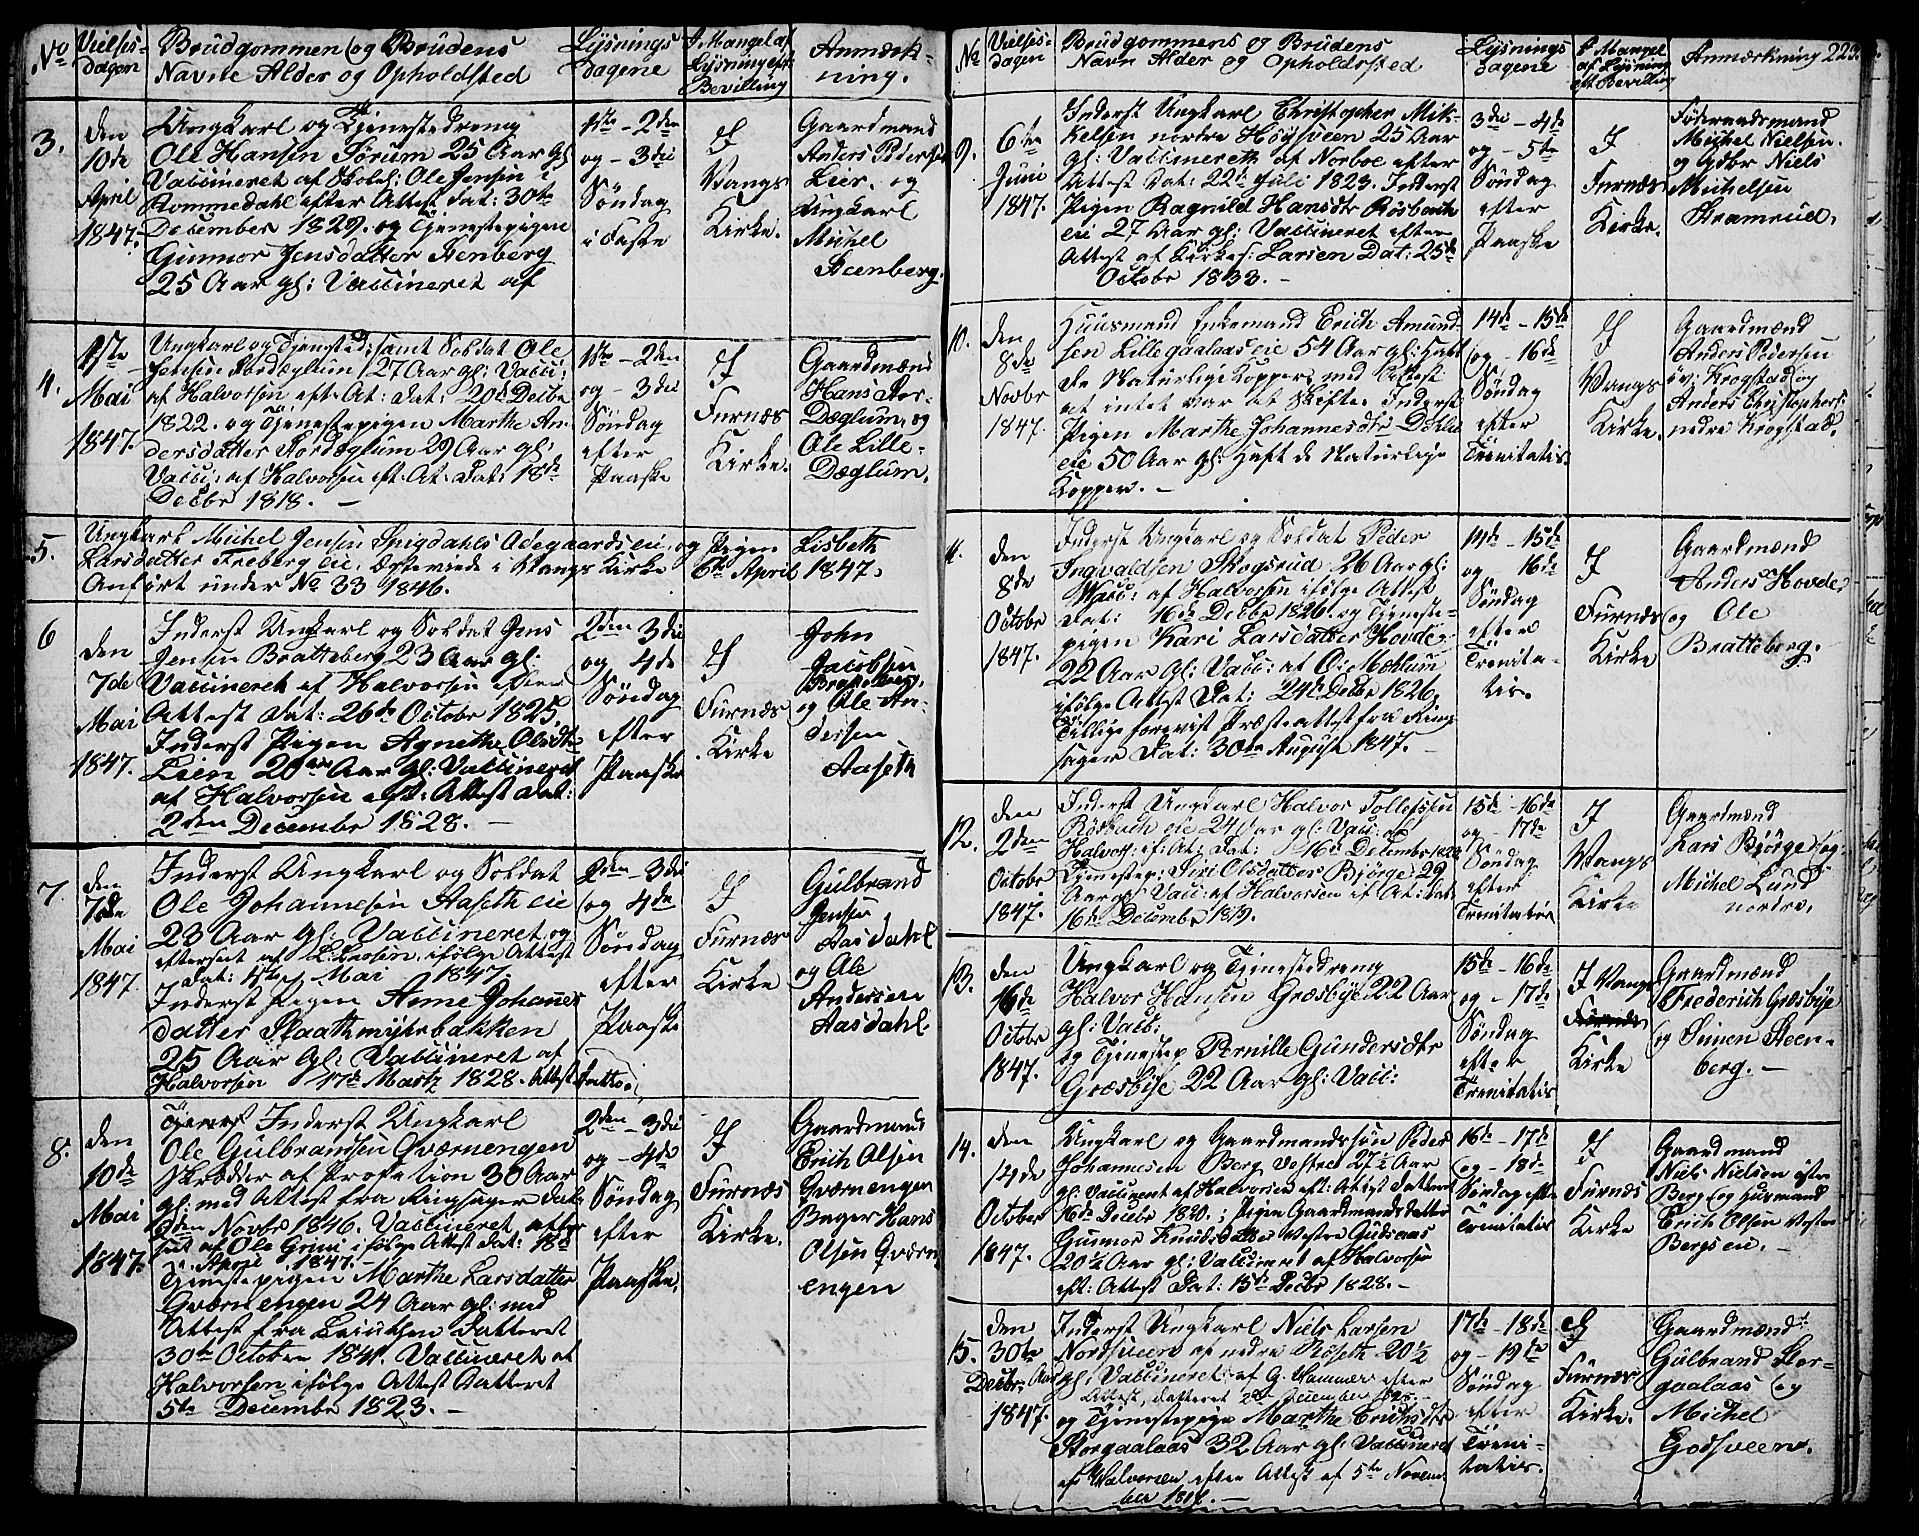 No
Vielses-
dagen
Brudgommen og Brudens
Navne Alder og Opholdsted
Lysnings
dagene
I Mangel af
Lysning eft:
Bevilling
Anmærk-
ning.
3.
den
10de
April
1847.
Ungkarl og Tjenestedreng
Ole Hansen Sørum 25 Aar gl:
Vaccineret af Ole Jensen i
Stommedahl efter Attest dat: 30te
December 1829. og Tjenestepigen
Gunnor Jensdatter Stenberg
25 Aar gl: Vaccineret af
1ste – 2den
og – 3die
Søndag
i Faste
I
Vangs
Kirke.
Gaardmænd
Anders Pedersen
Lier. og
Ungkarl
Michel
Steenberg.
4.
1ste
Mai
1847.
Ungkarl og Tjenested: samt Soldat Ole
Jensen Stordæglum 27 Aar gl: Vacci:
af Halvorsen eft: At: dat: 20de Decbr
1822. og Tjenestepigen Marthe An-
dersdatter Stordæglum 29 Aar gl:
Vacci: af Halvorsen eft: At: dat: 18de
Decbr 1818. –
1ste – 2den
og – 3die
Søndag
efter
Paaske
I
Furnæs
Kirke.
Gaardmænd
Hans Stor-
Dæglum, og
Ole Lille-
Dæglum.
5.
Ungkarl Michel Jensen Snigdahls Ødegaardseie, og Pigen Lisbeth
Larsdatter Freberg eie. Ægteviede i Vangs Kirke 6te April 1847.
Anført under No 33 1846.
6
den
7de
Mai
1847.
Inderst Ungkarl og Soldat Jens
Jensen Bratteberg 23 Aar gl:
Vaccineret af Halvorsen efter
Attest dat: 26de Octobr 1825.
Inderst Pigen Agnethe Olsdtr
Lien 20 Aar gl: Vaccineret
af Halvorsen eft: Attest dat:
2den December 1828. –
2den 3die
og 4de
Søndag
efter
Paaske
I
Furnæs
Kirke
John
Jacobsen
Bratteberg,
og Ole An-
dersen
Aaseth
7.
den
7de
Mai
1847.
Inderst Ungkarl og Soldat
Ole Johannesen Aaseth eie
23 Aar gl: Vaccineret og
efterseet af L. Larsen, ifølge Attest
dat: 4de Mai 1847.
Inderst Pigen Anne Johannes
datter Staathmyhrbakken
25 Aar gl: Vaccineret af
Halvorsen 17de Martz 1828. Attest datto.
2den – 3die
og 4de
Søndag
efter
Paaske
I
Furnæs
Kirke
Gulbrand
Jensen
Aasdahl
og Ole
Andersen
Aasdahl.
8.
den
10de
Mai
1847.
Inderst Ungkarl
Ole Gulbrandsen Qværnengen
Skrædder af Profession 30 Aar
gl: med Attest fra Ringsager dat:
2den Novbr 1846. Vaccineret, efter
seet af Ole Grini ifølge Attest dat: 18de
April 1847. –
Tjenestepigen Marthe Larsdatter
Qværnengen 24 Aar gl: med
Attest fra Leuthen datteret
30te October 1841. Vaccineret af
Halvorsen ifølge Attest datteret
5te December 1823. –
2den – 3die
og – 4de
Søndag
efter
Paaske.
I
Furnæs
Kirke.
Gaardmand
Erich Olsen
Qværnengen
Bager Hans
Olsen Qværn-
engen
No
Vielses-
dagen
Brudgommens og Brudens
Navn Alder og Opholdssted
Lysnings
dagene
I Mangel
af Lysning
eft Bevilling
Anmærkning
223.
9.
6te
Juni
1847.
Inderst Ungkarl Christopher Mik-
kelsen nordre Høysveen 25 Aar
gl: Vaccinereth af Norboe efter
Attest dat: 22de Juli 1823. Inderst
Pigen Ragnild Hansdtr Røsbach
eie 27 Aar gl: Vaccineret efter
Attest af Kirkes: Larsen Dat: 25de
Octobr 1833. –
3die – 4de
og – 5te
Søndag
efter
Paaske
I
Furnæs
Kirke.
Føderaadsmand
Michel Nielsen.
og Gdbr Niels
Michelsen
Stramrud.
10.
den
8de
Novbr
1847.
Huusmand Enkemand Erich Amund-
sen Lillegaalaaseie 54 Aar gl: Haft
de Naturlige Kopper, med Attest
at intet var at Skifte. Inderst
Pigen Marthe Johannesdtr Dehlie
eie 50 Aar gl: Haft de Naturlige
Kopper. –
14de – 15de
og – 16de
Søndag
efter
Trinitatis.
I
Vangs
Kirke.
Gaardmænd
Anders Pedersen
øv: Krogstad og
Anders Christophers:
nedre Krogstad.
11.
den
8de
Octobr
1847.
Inderst Ungkarl og Soldat Peder
Ingvaldsen Skogsrud 26 Aar gl:
Vacc: af Halvorsen ifølge Attest
Dat: 16de Decbr 1826. og Tjeneste-
pigen Kari Larsdatter Hovde
22 Aar gl: Vacc: af O: Mæhlum
ifølge Attest Dat: 24de Decbr 1826.
Tillige forevist Præsteattest fra Ring-
sager Dat: 30te August 1847. –
14de – 15de
og – 16de
Søndag
efter
Trinita-
tis.
I
Furnæs
Kirke
Gaardmænd
Anders Hovde
og Ole
Bratteberg.
12.
den
2den
Octobr
1847.
Inderst Ungkarl Halvor Tollefsen
Røsbach eie 24 Aar gl: Vacc: af
Halvors: if: At: Dat: 16de Decembr
Tjenestep: Siri Olsdatter Bjørge 29
Aar gl: Vacc: af Halvorsen if At: dat
16de Decembr 1819.
15de – 16de
og – 17de
Søndag
efter
Trinitatis
I
Vangs
Kirke
Gaardmænd
Lars Bjørge og
Michel Lund
nordre.
13.
den
16de
Octobr
1847.
Ungkarl og Tjenestedreng
Halvor Hansen Græsbye 22 Aar
gl: Vacc:
og Tjenestep Pernille Gundersdtr
Græsbye 22 Aar gl: Vacc:
15de – 16de
og – 17de
Søndag
efter
Trinitatis
I Vangs
Furnæs
Kirke
Gaardmænd
Frederich Græsbye
og Simen Steen-
berg. –
14.
den
14de
October
1847.
Ungkarl og Gaardmandssøn Peder
Johannesen Berg Vestre 27½ Aar
gl: Vaccineret af Halvorsen eft: Attest Datteret
16de Decbr 1820. : Pigen Gaardmandsdatter
Gunnor Knudsdatter Vestre Gudsaas
20½ Aar gl: Vaccineret af Halvorsen
eft: Attest Dat: 15de Decbr 1828. –
16de – 17de
og – 18de
Søndag efter
Trinitatis
I
Furnæs
Kirke
Gaardmand
Niels Nielsen østre
Berg og Husmand
Erich Olsen Vestre
Bergs eie. –
15.
den
30te
Decbr
1847.
Inderst Ungkarl Niels Larsen
Nordsveen af nedre Røseth 20½
Aar gl: Vaccineret af G. Hammer efter
Attest, datteret 2den December
og Tjenestepige Marthe Erichsdtr
Storgaalaas 32 Aar gl: Vaccineret
af Halvorsen efter Attest af 5te Novem-
ber
17de – 18de
og – 19de
Søndag
efter
Trini-
tatis.
I
Furnæs
Kirke.
Gaardmænd
Gulbrand Stor-
gaalaas og
Michel
Godsveen.